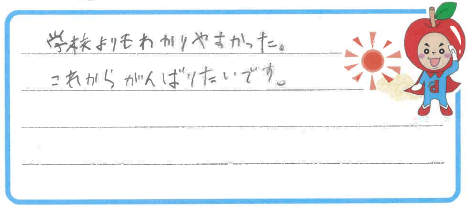 学校よりもわかりやすかった。
これからがんばりたいです。
d